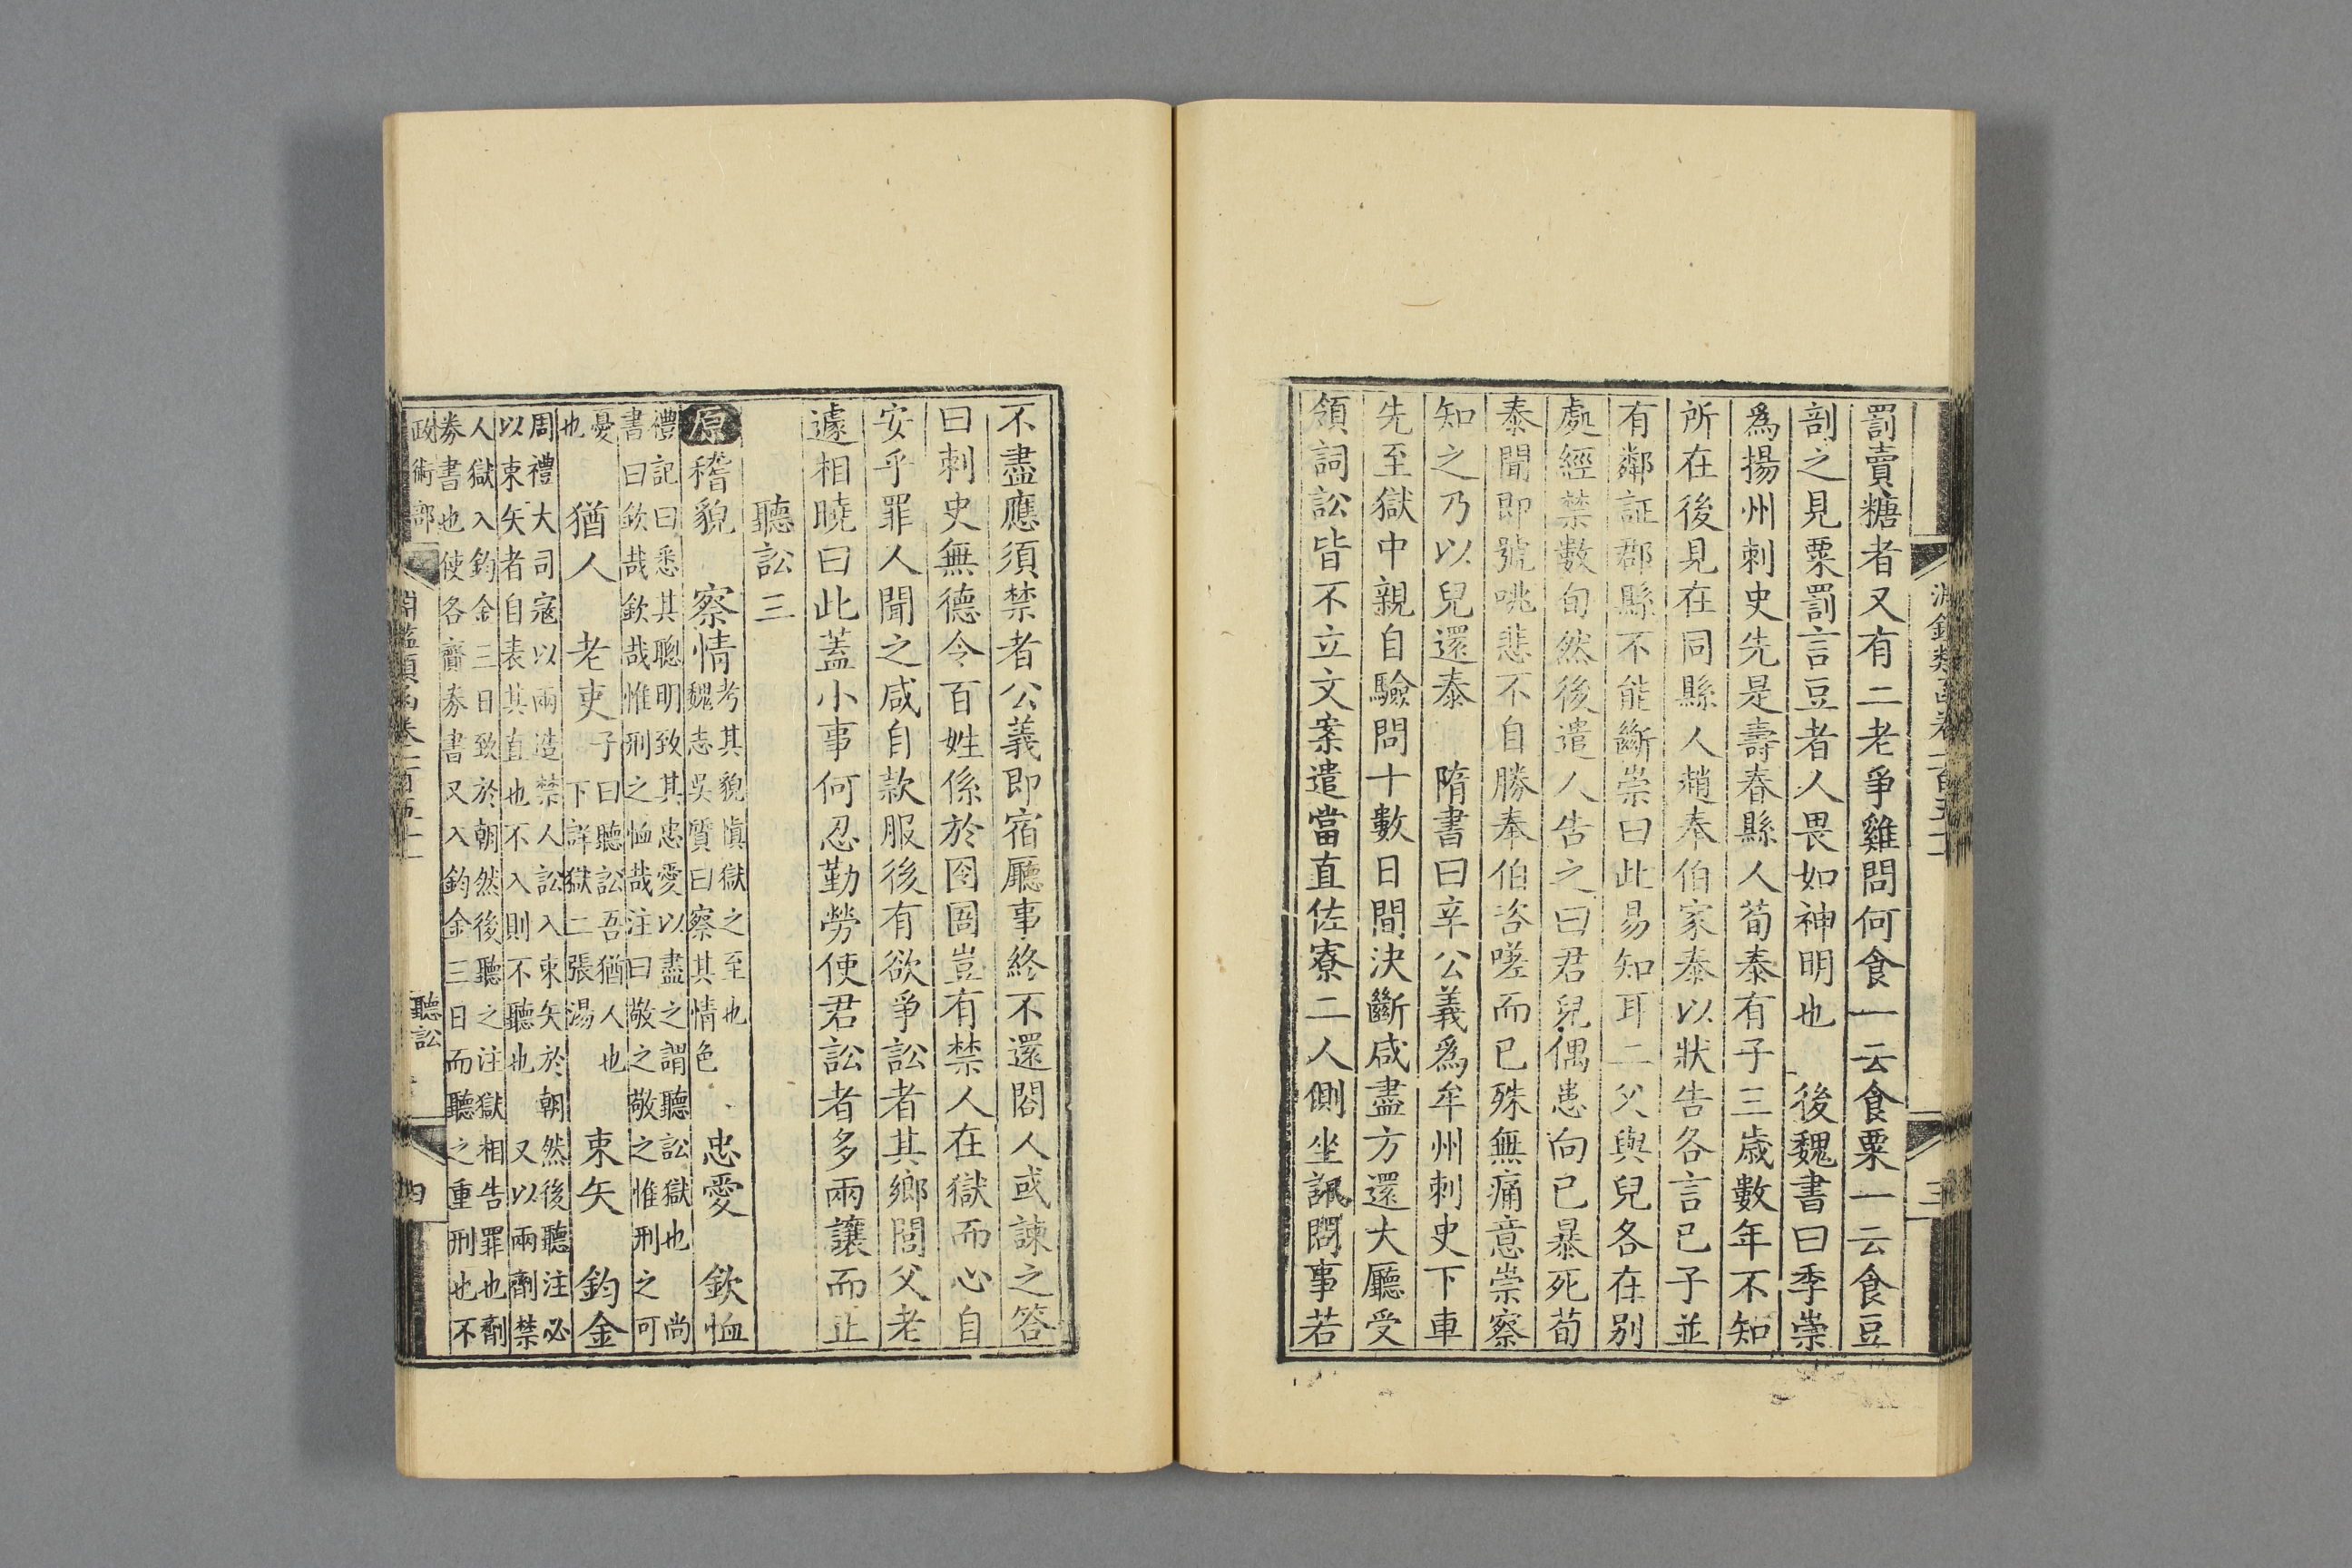 罰賣糖者又有二老爭雞問何食一云食粟一云食豆
剖之見粟罰言豆者人畏如神明也　後魏書曰季崇
爲揚州刺史先是壽春縣人荀泰有子三歲數年不知
所在後見在同縣人趙奉伯家泰以狀告各言已子並
有鄰証郡縣不能斷崇曰此易知耳二父與兒各在別
處經禁數旬然後遣人告之曰君兒偶患向已暴死荀
泰聞即號咷悲不自勝奉伯咨嗟而已殊無痛意崇察
知之乃以兒還泰　隋書曰辛公義爲牟州刺史下車
先至獄中親自驗問十數日間決斷咸盡方還大廳受
領詞訟皆不立文案遣當直佐寮二人側坐訊問事若
不盡應須禁者公義即宿廳事終不還閤人或諫之答
曰刺史無德令百姓係於囹圄豈有禁人在獄而心自
安乎罪人聞之咸自款服後有欲爭訟者其鄉閭父老
遽相曉曰此蓋小事何忍勤勞使君訟者多兩讓而止
聽訟三
原 稽貌　察情 考其貌愼獄之至也 魏志吳質曰察其情色　忠愛　欽恤
禮記曰悉其聰明致其忠愛以盡之謂聽訟獄也　尚
書曰欽哉欽哉惟刑之恤哉注曰敬之敬之惟刑之可
憂也　猶人　老吏 子曰聽訟吾猶人也 下詳獄二張湯　束矢　鈞金
周禮大司寇以兩造禁人訟入束矢於朝然後聽注必
以束矢者自表其直也不入則不聽也　又以兩劑禁
人獄入鈞金三日致於朝然後聽之注獄相告罪也劑
券書也使各齎券書又入鈞金三日而聽之重刑也不
政術部
淵鑑類函卷一百五十一
聽訟
四
三